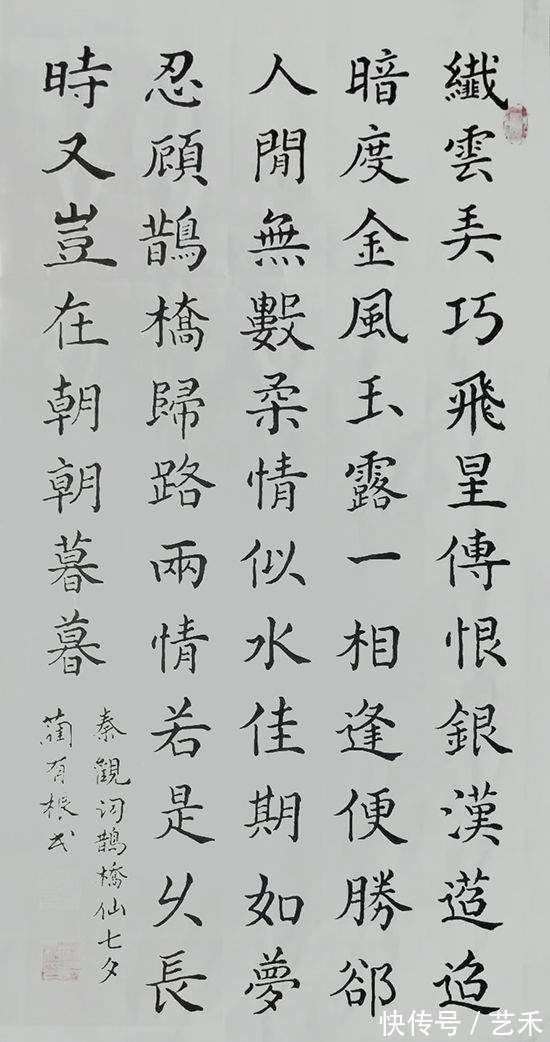 纖雲弄巧飛星傳恨銀漢迢迢
暗度金風玉露一相逢便勝郤
人閒無數柔情似水佳期如夢
忍顧鵲橋歸路兩情若是久長
時又豈在朝朝暮暮
秦觀词鵲橋仙七夕
有根书
快传号 / 艺禾